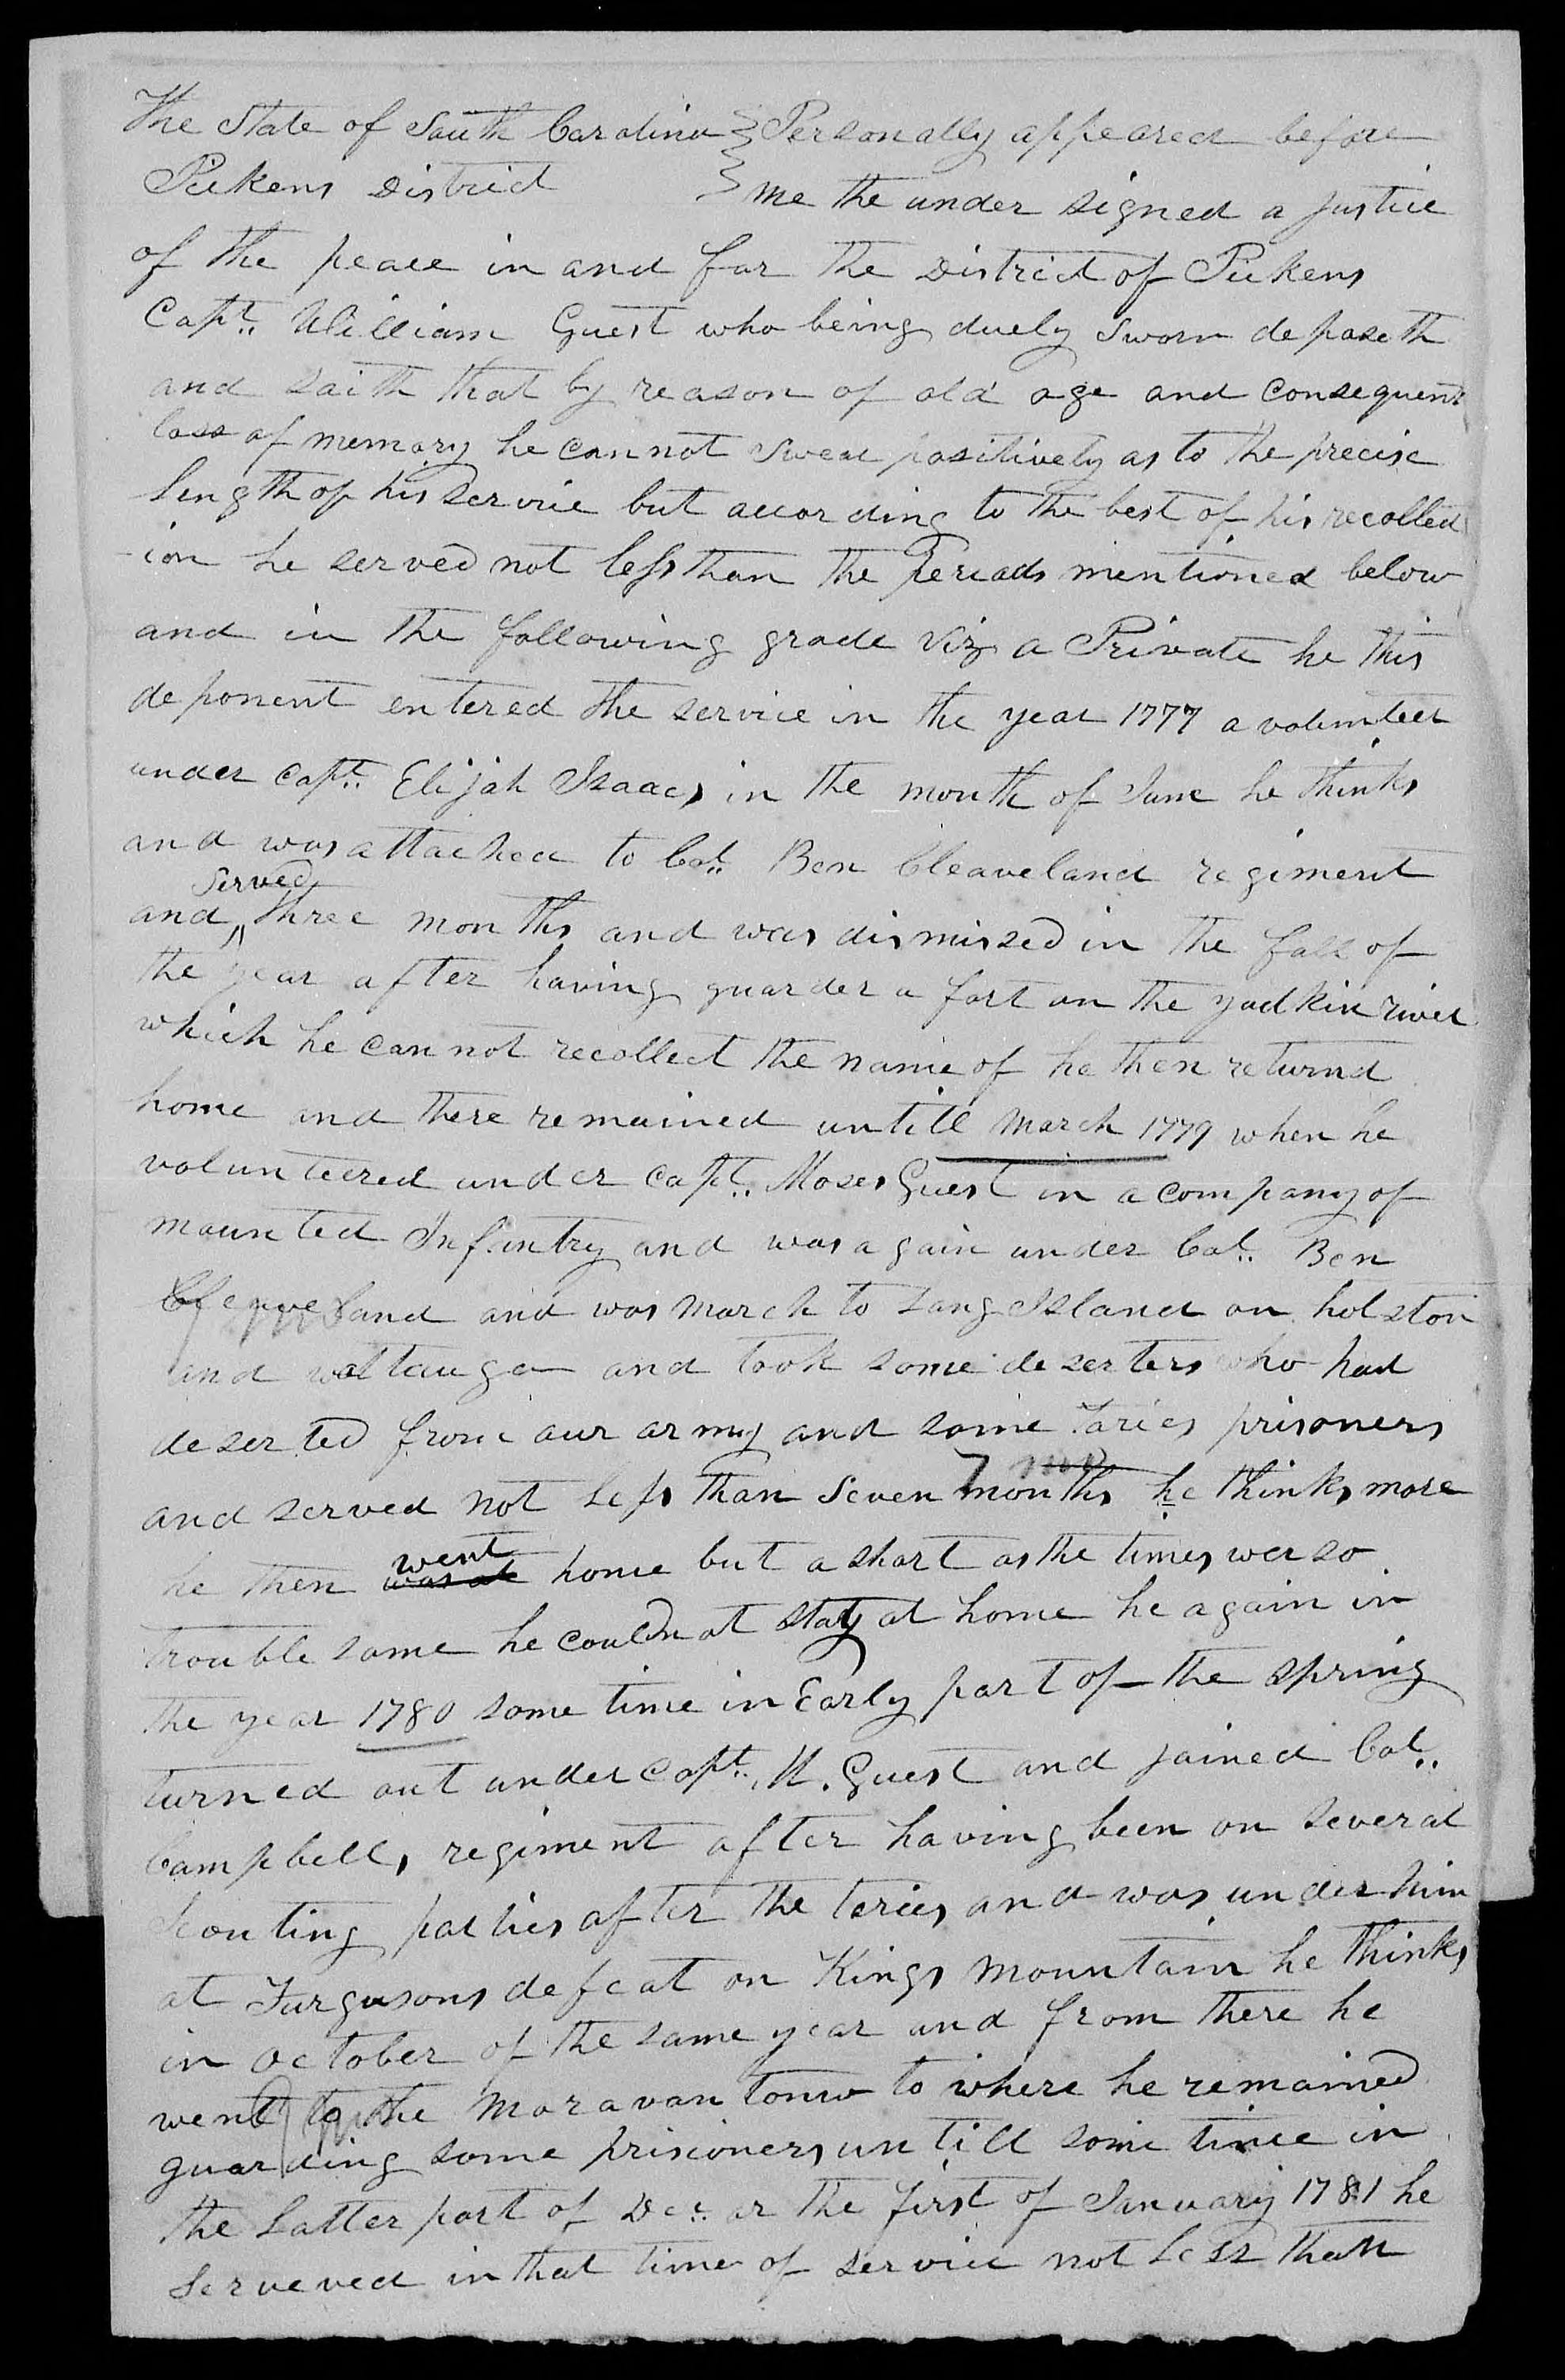 The State of South Carolina } Personally appeared before
Pickens District } me the under signed a justice
of the peace in and for the District of Pickens
Capt. William Guest who being duely sworn deposeth
and saith that by reason of old age and consequent
loss of memory he cannot swear positively as to the precise
length of his service but according to the best of his recollect
-ion he served not less than the Periods mentioned below
and in the following grade viz a Private he this
deponent entered the service in the year 1777 a volunteer
under Capt. Elijah Isaacs in the month of June he thinks
and was attached to Col. Ben Cleaveland regiment
and served three months and was dismissed in the fall of
the year after having guarder a fort on the yadkin river
which he can not recollect the name of he then returnd
home and there remained untill march 1779 when he
volunteered under Capt. Moses Guest in a company of
mounted Infantry and was again under Col. Ben
Cleaveland and was march to Long Island on holston
and wattauga and took some deserters who had
deserted from our army and some tories prisoners
7 mo
and served not less than seven months he thinks more
he then was at went home but a short as the times wer so
troublesome he could not staty at home he again in
the year 1780 some time in Early part of the spring
turned out under Capt. M. Guest and joined Col.
Campbells regiment after having been on several
scouting parties after the tories and was under him
at Furgusons defeat on Kings mountain he thinks
in october of the same year and from there he
went to the moravan tonw to where he remained
guarding some prisioners untill some time in
the Latter part of Dec. or the first of January 1781 he
serveved in that time of service not less than